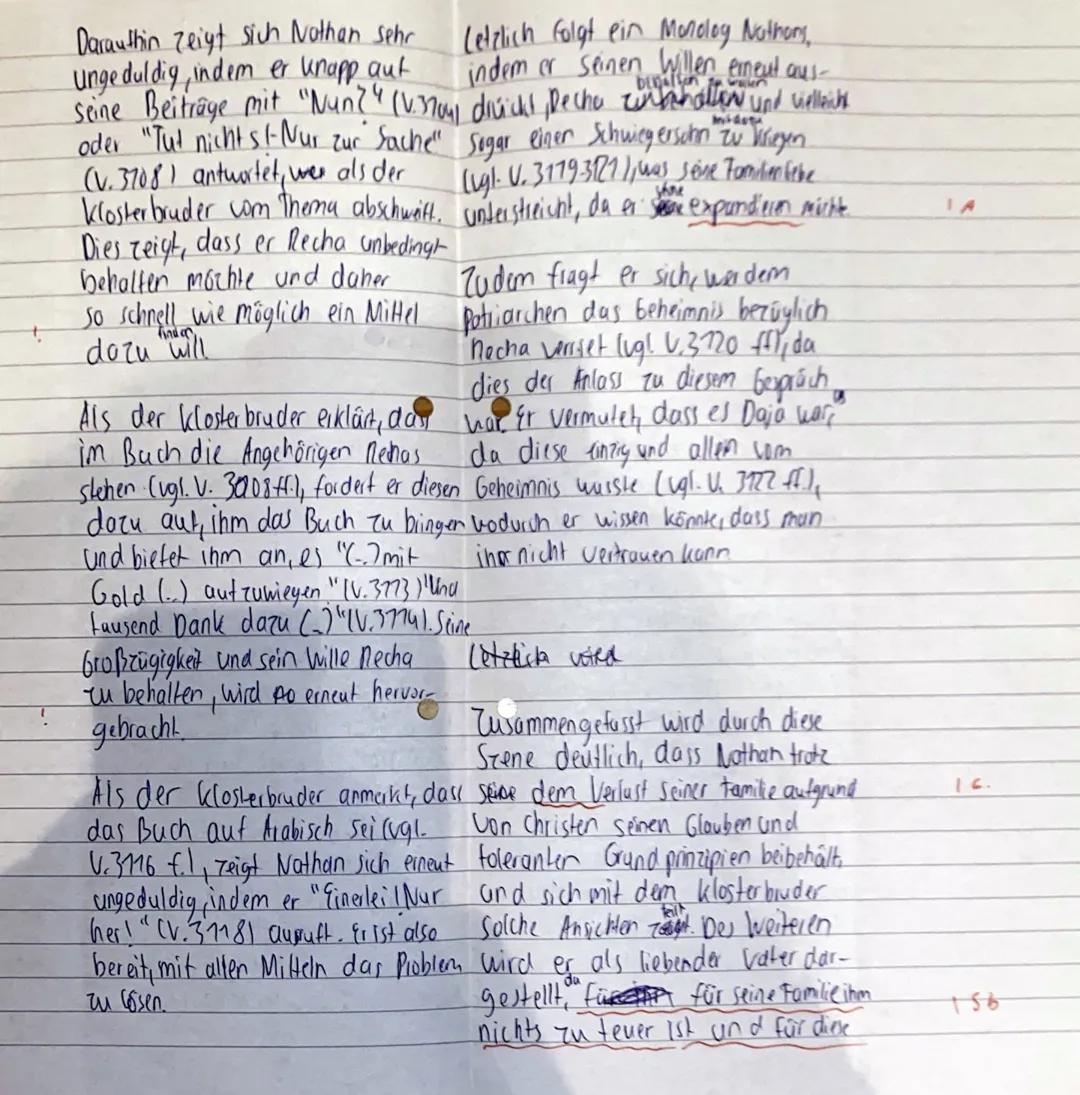 Daraufhin zeigt sich Nathan sehr
ungeduldig, indem er knapp auf
seine Beiträge mit "Nun?" (V.3704)
oder "Tut nichts!-Nur zur Sache"
(V. 3708) antwortet, wer als der
Klosterbruder vom Thema abschweift.
Dies zeigt, dass er Recha unbedingt
behalten möchte und daher
so schnell wie möglich ein Mittel
!
dazu finden will
Als der Klosterbruder erklärt, dass
im Buch die Angehörigen Rechas
stehen (vgl. V. 3708 ff.), fordert er diesen
dazu auf, ihm das Buch zu bringen
und bietet ihm an, es "(..) mit
Gold (..) aufzuwiegen" (V. 3773) "Und
tausend Dank dazu (..)" (V. 3774). Seine
Großzügigkeit und sein Wille Recha
zu behalten, wird so erneut hervor-
!
gebracht.
Als der Klosterbruder anmerkt, dass
das Buch auf Arabisch sei (vgl.
V. 3116 f.), zeigt Nathan sich erneut
ungeduldig, indem er "Einerlei! Nur
her!" (V. 3118) ausruft. Er ist also
bereit, mit allen Mitteln das Problem
zu lösen.
Letzlich folgt ein Monolog Nathans,
indem er seinen Willen erneut aus-
drückt, Recha behalten zu wollen und vielleicht
sogar einen Schwiegersohn mit dazu zu kriegen
(vgl. V. 3119-3121), was seine Familienliebe
unterstreicht, da er ohne expandieren möchte. I A
Zudem fragt er sich, wer dem
Patriarchen das Geheimnis bezüglich
Recha verriet (vgl. V. 3120 ff), da
dies der Anlass zu diesem Gespräch
war. Er vermutet, dass es Daja war,
da diese einzig und allein vom
Geheimnis wusste (vgl. V. 3122 ff.),
wodurch er wissen könnte, dass man
ihr nicht vertrauen kann
Letztlich wird
Zusammengefasst wird durch diese
Szene deutlich, dass Nathan trotz
dem Verlust seiner Familie aufgrund I G.
von Christen seinen Glauben und
toleranten Grundprinzipien beibehält,
und sich mit dem Klosterbruder
solche Ansichten teilt. Des Weiteren
wird er als liebender Vater dar-
gestellt, da für seine Familie ihm I Sb
nichts zu teuer ist und für diese